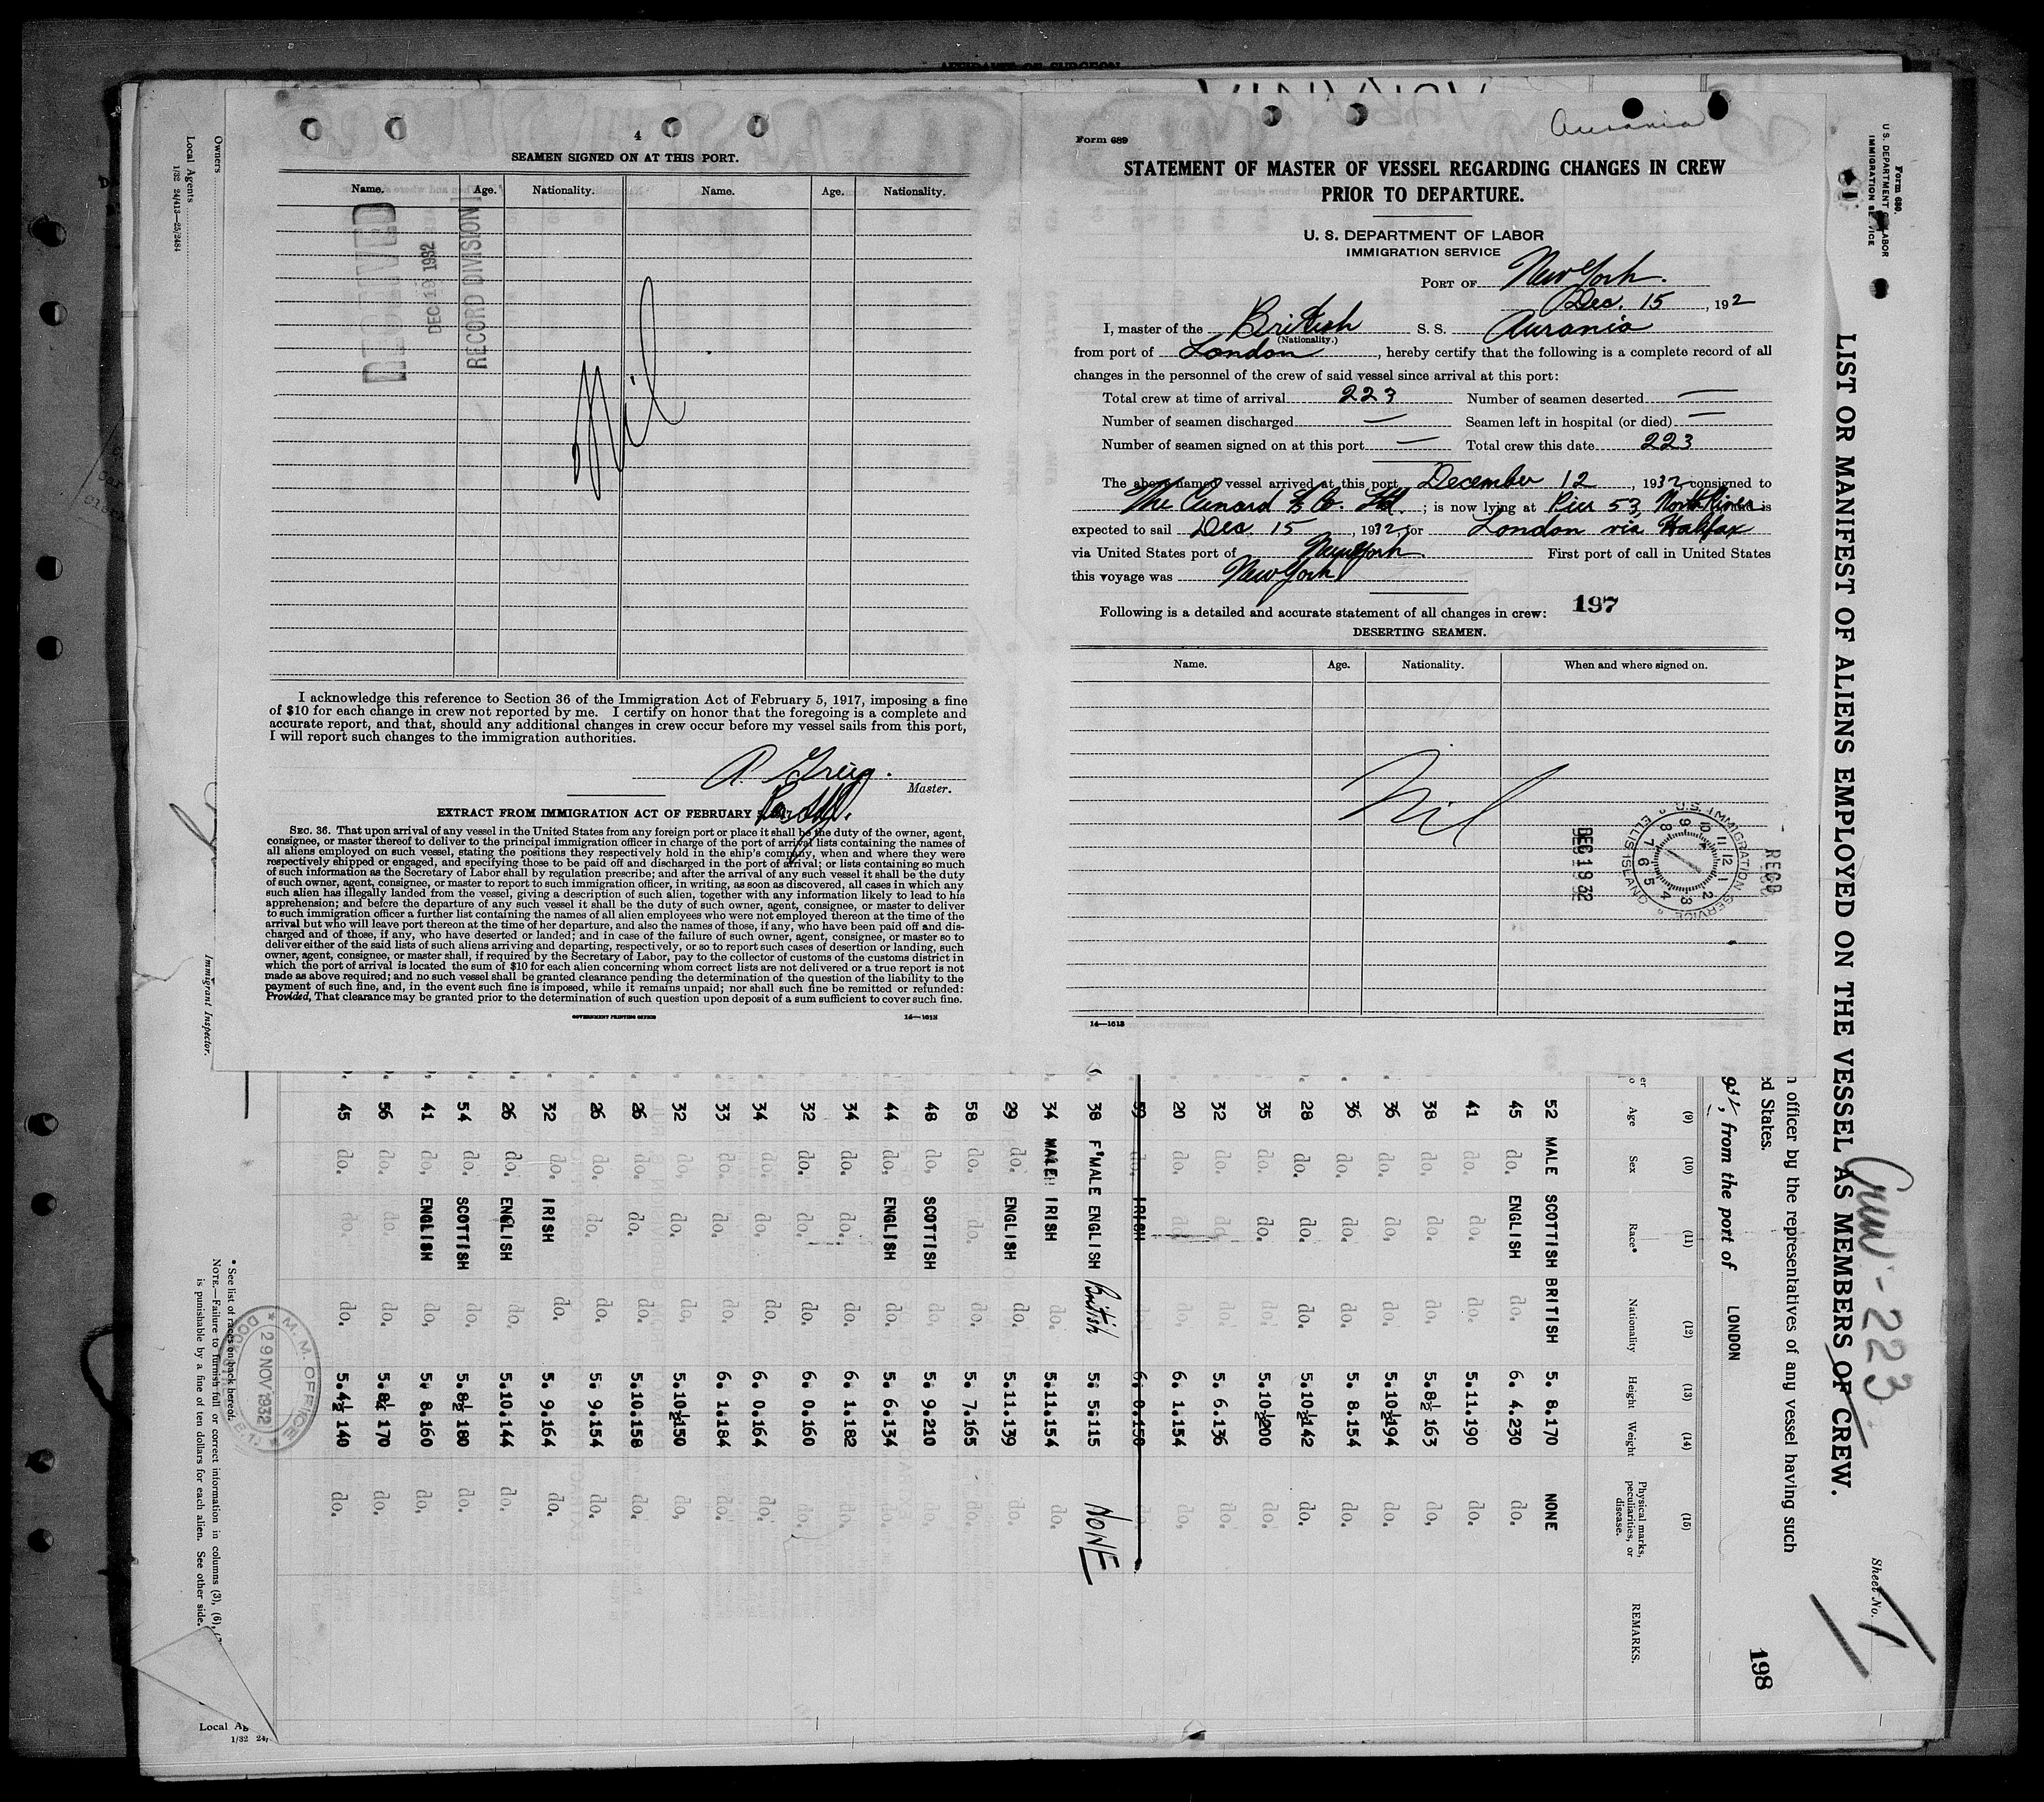 AFFIDAVIT OF SURGEON
4
SEAMEN SIGNED ON AT THIS PORT.
Name. Age. Nationality. Name. Age. Nationality.
RECEIVED
DEC 19 1932
RECORD DIVISION
Nil
I acknowledge this reference to Section 36 of the Immigration Act of February 5, 1917, imposing a fine
of $10 for each change in crew not reported by me. I certify on honor that the foregoing is a complete and
accurate report, and that, should any additional changes in crew occur before my vessel sails from this port,
I will report such changes to the immigration authorities.
Master.
EXTRACT FROM IMMIGRATION ACT OF FEBRUARY 5, 1917.
SEC. 36. That upon arrival of any vessel in the United States from any foreign port or place it shall be the duty of the owner, agent,
consignee, or master thereof to deliver to the principal immigration officer in charge of the port of arrival lists containing the names of
all aliens employed on such vessel, stating the positions they respectively hold in the ship's company, when and where they were
respectively shipped or engaged, and specifying those to be paid off and discharged in the port of arrival; or lists containing so much
of such information as the Secretary of Labor shall by regulation prescribe; and after the arrival of any such vessel it shall be the duty
of such owner, agent, consignee, or master to report to such immigration officer, in writing, as soon as discovered, all cases in which any
such alien has illegally landed from the vessel, giving a description of such alien, together with any information likely to lead to his
apprehension; and before the departure of any such vessel it shall be the duty of such owner, agent, consignee, or master to deliver
to such immigration officer a further list containing the names of all alien employees who were not employed thereon at the time of the
arrival but who will leave port thereon at the time of her departure, and also the names of those, if any, who have been paid off and dis-
charged and of those, if any, who have deserted or landed; and in case of the failure of such owner, agent, consignee, or master so to
deliver either of the said lists of such aliens arriving and departing, respectively, or so to report such cases of desertion or landing, such
owner, agent, consignee, or master shall, if required by the Secretary of Labor, pay to the collector of customs of the customs district in
which the port of arrival is located the sum of $10 for each alien concerning whom correct lists are not delivered or a true report is not
made as above required; and no such vessel shall be granted clearance pending the determination of the question of the liability to the
payment of such fine, and, in the event such fine is imposed, while it remains unpaid; nor shall such fine be remitted or refunded:
Provided, That clearance may be granted prior to the determination of such question upon deposit of a sum sufficient to cover such fine.
GOVERNMENT PRINTING OFFICE 14—1613
Form 689
Aurania
STATEMENT OF MASTER OF VESSEL REGARDING CHANGES IN CREW
PRIOR TO DEPARTURE.
U. S. DEPARTMENT OF LABOR
IMMIGRATION SERVICE
PORT OF New York.
Dec. 15, 192
I, master of the British S. S. Aurania
(Nationality.)
from port of London, hereby certify that the following is a complete record of all
changes in the personnel of the crew of said vessel since arrival at this port:
Total crew at time of arrival 223 Number of seamen deserted —
Number of seamen discharged — Seamen left in hospital (or died) —
Number of seamen signed on at this port — Total crew this date 223
The above-named vessel arrived at this port December 12, 1932 consigned to
The Cunard S. Co. Ltd.; is now lying at Pier 53, North River and is
expected to sail Dec. 15, 1932, for London via Halifax
via United States port of New York. First port of call in United States
this voyage was New York
Following is a detailed and accurate statement of all changes in crew: 197
DESERTING SEAMEN.
Name. Age. Nationality. When and where signed on.
Nil
DEC 19 32
U.S. IMMIGRATION SERVICE ELLIS ISLAND
RECD
14—1613
Form 680.
U S. DEPARTMENT OF LABOR
IMMIGRATION SERVICE
LIST OR MANIFEST OF ALIENS EMPLOYED ON THE VESSEL AS MEMBERS OF CREW.
Crew - 223
Sheet No. 1
198
officer by the representatives of any vessel having such
ed States.
, from the port of LONDON
(9) (10) (11) (12) (13) (14) (15)
Age Sex Race* Nationality Height Weight Physical marks, peculiarities, or disease. REMARKS.
52 MALE SCOTTISH BRITISH 5. 8. 170 NONE
45 do. ENGLISH do. 6. 4. 230 do.
41 do. do. do. 5.11. 190 do.
38 do. do. do. 5.8½ 163 do.
36 do. do. do. 5.10½ 194 do.
36 do. do. do. 5. 8. 154 do.
28 do. do. do. 5.10½ 142 do.
35 do. do. do. 5.10½ 200 do.
32 do. do. do. 5. 6. 136 do.
20 do. do. do. 6. 1. 154 do.
59 do. IRISH do. 6. 0. 150 do.
38 F'MALE ENGLISH British 5. 5. 115 NONE
34 MALE IRISH do. 5.11. 154 do.
29 do. ENGLISH do. 5.11. 139 do.
58 do. do. do. 5. 7. 165 do.
48 do. SCOTTISH do. 5. 9. 210 do.
44 do. ENGLISH do. 5. 6. 134 do.
34 do. do. do. 6. 1. 182 do.
32 do. do. do. 6. 0. 160 do.
34 do. do. do. 6. 0. 164 do.
33 do. do. do. 6. 1. 184 do.
32 do. do. do. 5.10½ 150 do.
26 do. do. do. 5.10. 158 do.
26 do. do. do. 5. 9. 154 do.
32 do. IRISH do. 5. 9. 164 do.
26 do. ENGLISH do. 5.10. 144 do.
54 do. SCOTTISH do. 5.8½ 180 do.
41 do. ENGLISH do. 5. 8. 160 do.
56 do. do. do. 5.8¼ 170 do.
45 do. do. do. 5.4½ 140 do.
* See list of races on back hereof.
NOTE.—Failure to furnish full or correct information in columns (3), (6),
is punishable by a fine of ten dollars for each alien. See other side.
M. M. OFFICE
29 NOV 1932
DOCK ST. E.1.
Owners
Local Agents
1/32 24/413—25/2484
Immigrant Inspector.
Local Ag
1/32 24,